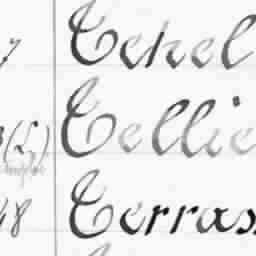 7 Tekel
(L) Tellie
48 Terras